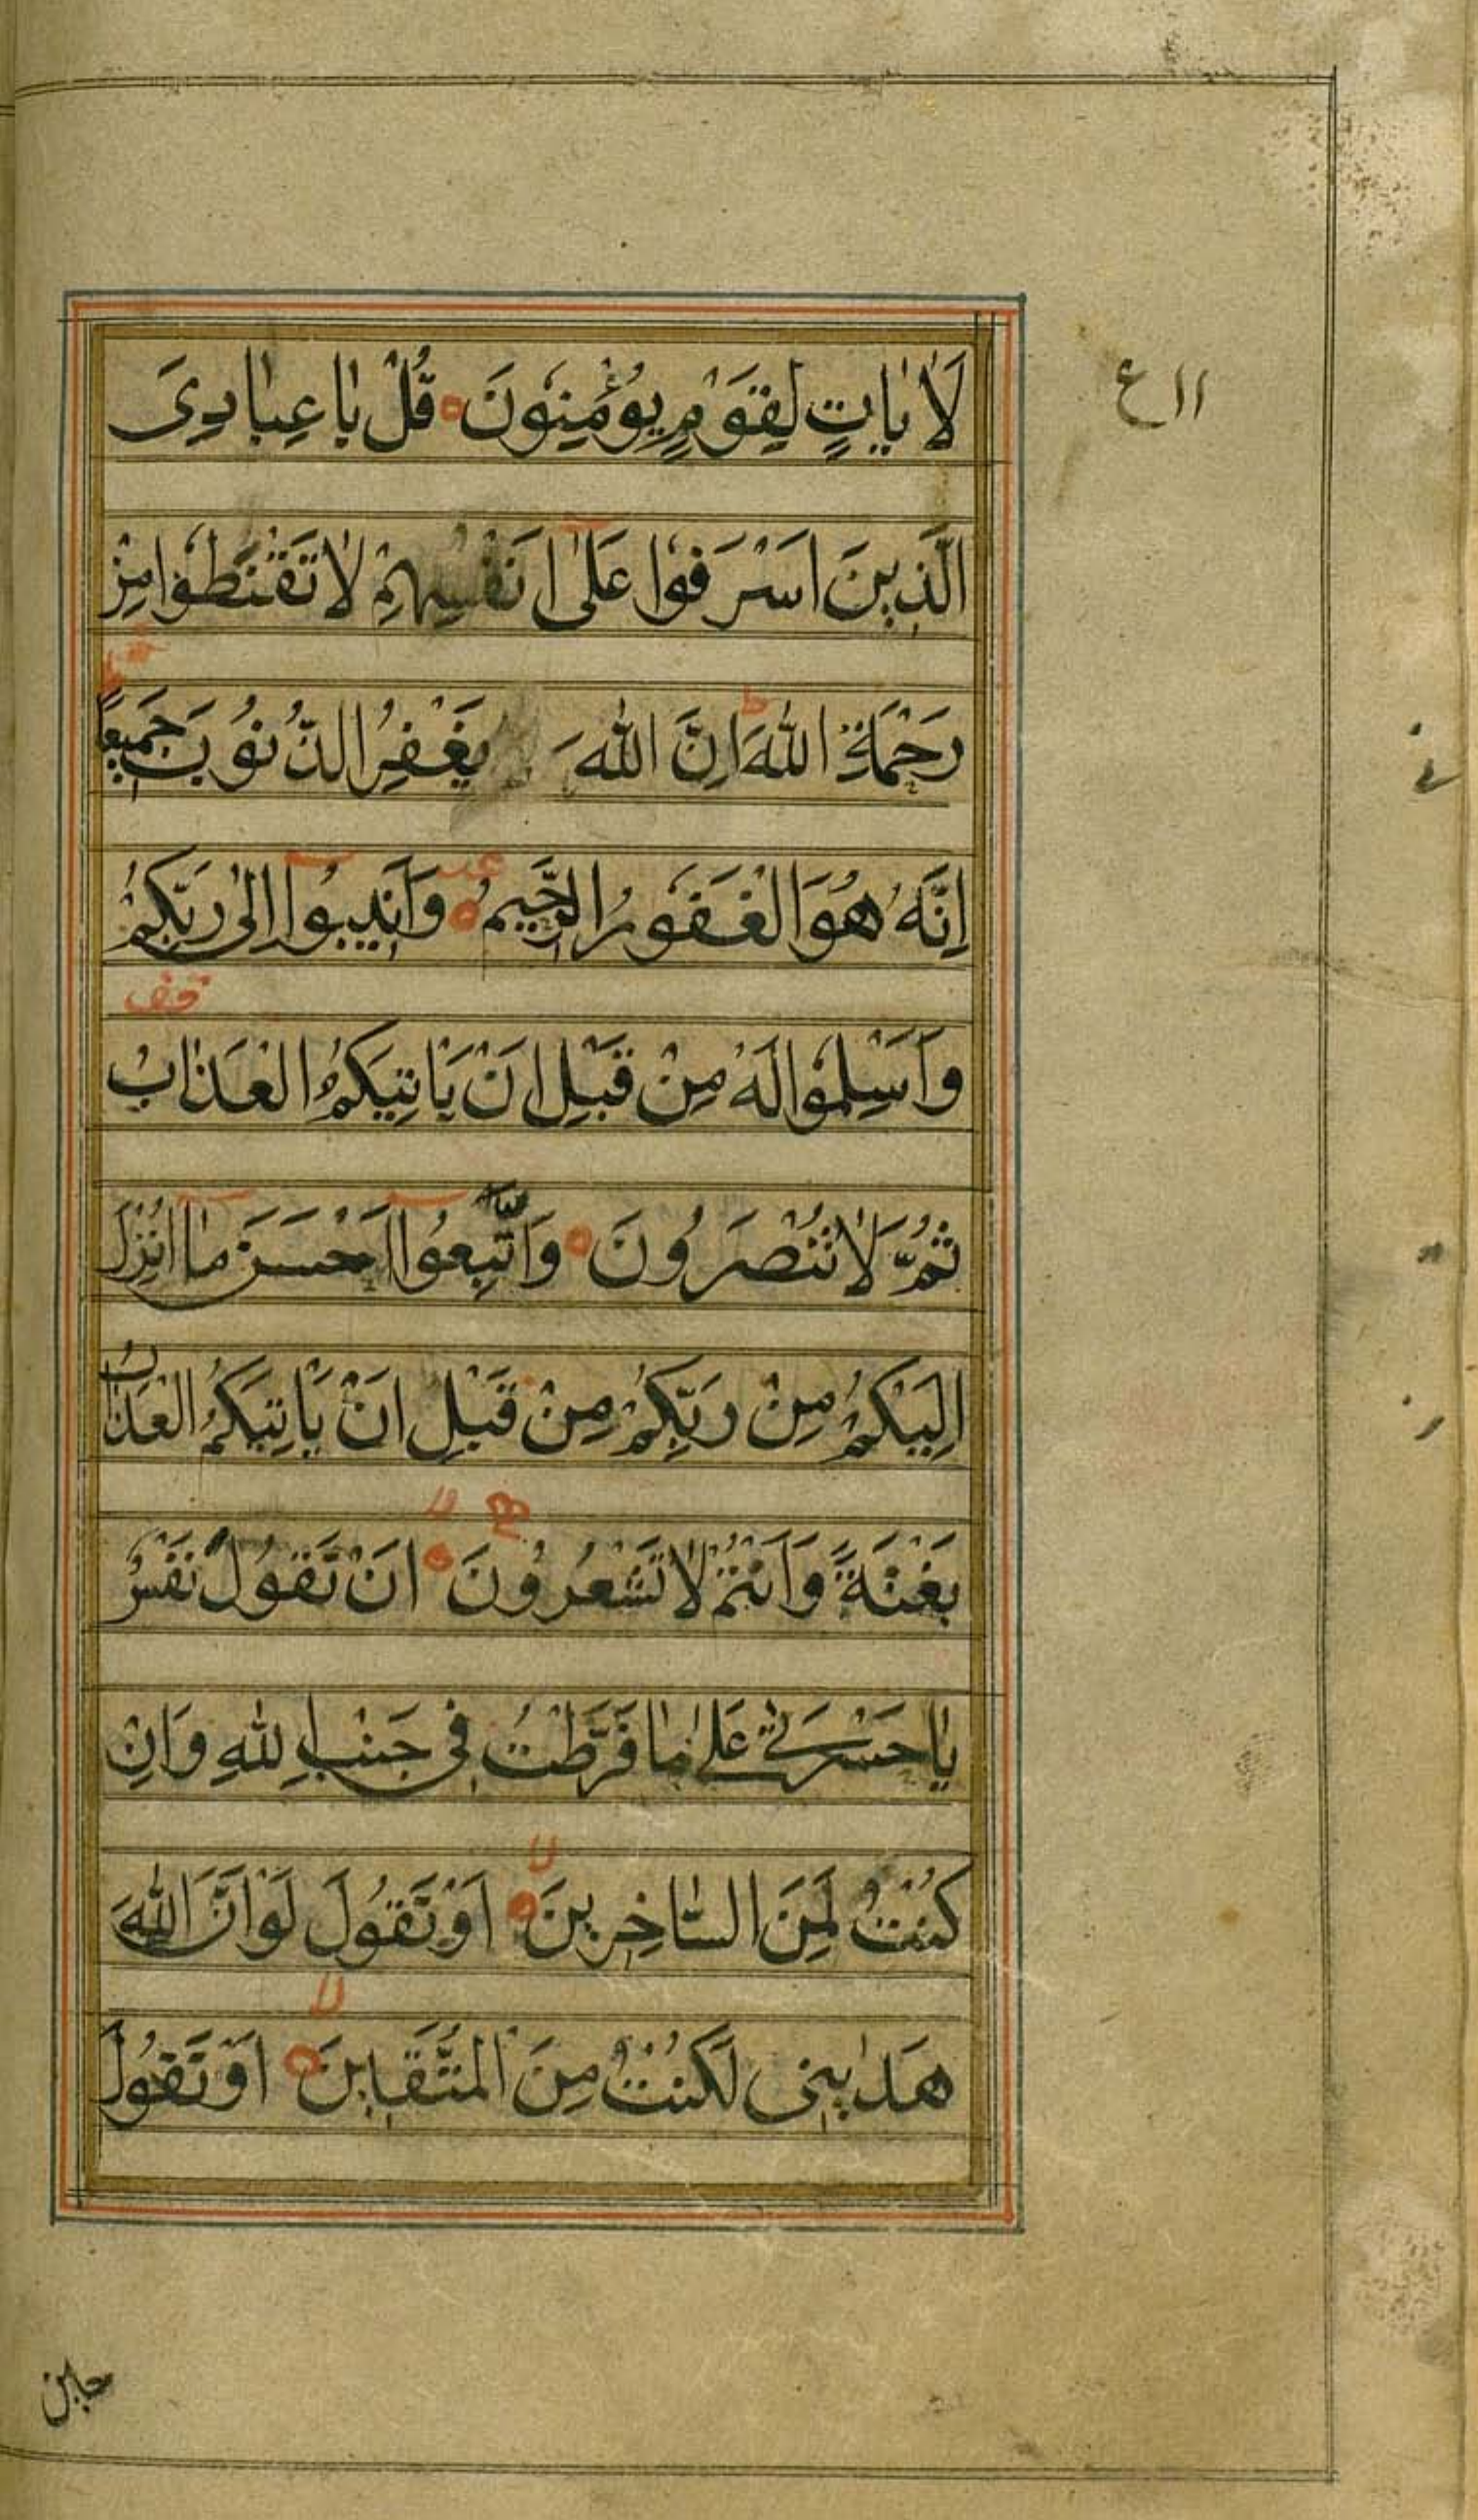 ااع
لَاٰيَاتٍ لِقَوْمٍ يُؤْمِنُونَ قُلْ يَا عِبَادِيَ
الَّذِينَ اَسْرَفُوا عَلٰى اَنْفُسِهِمْ لَا تَقْنَطُوا مِنْ
رَحْمَةِ اللّٰهِ ط اِنَّ اللّٰهَ يَغْفِرُ الذُّنُوبَ جَمِيعًا ط
اِنَّهُ هُوَ الْغَفُورُ الرَّحِيمُ وَاَنِيبُوا اِلٰى رَبِّكُمْ
وَاَسْلِمُوا لَهُ مِنْ قَبْلِ اَنْ يَاْتِيَكُمُ الْعَذَابُ
ثُمَّ لَا تُنْصَرُونَ وَاتَّبِعُوا اَحْسَنَ مَا اُنْزِلَ
اِلَيْكُمْ مِنْ رَبِّكُمْ مِنْ قَبْلِ اَنْ يَاْتِيَكُمُ الْعَذَابُ
بَغْتَةً وَاَنْتُمْ لَا تَشْعُرُونَ لا اَنْ تَقُولَ نَفْسٌ
يَا حَسْرَتٰى عَلٰى مَا فَرَّطْتُ فِى جَنْبِ اللّٰهِ وَاِنْ
كُنْتُ لَمِنَ السَّاخِرِينَ لا اَوْ تَقُولَ لَوْ اَنَّ اللّٰهَ
هَدٰينِى لَكُنْتُ مِنَ الْمُتَّقِينَ لا اَوْ تَقُولَ
حين